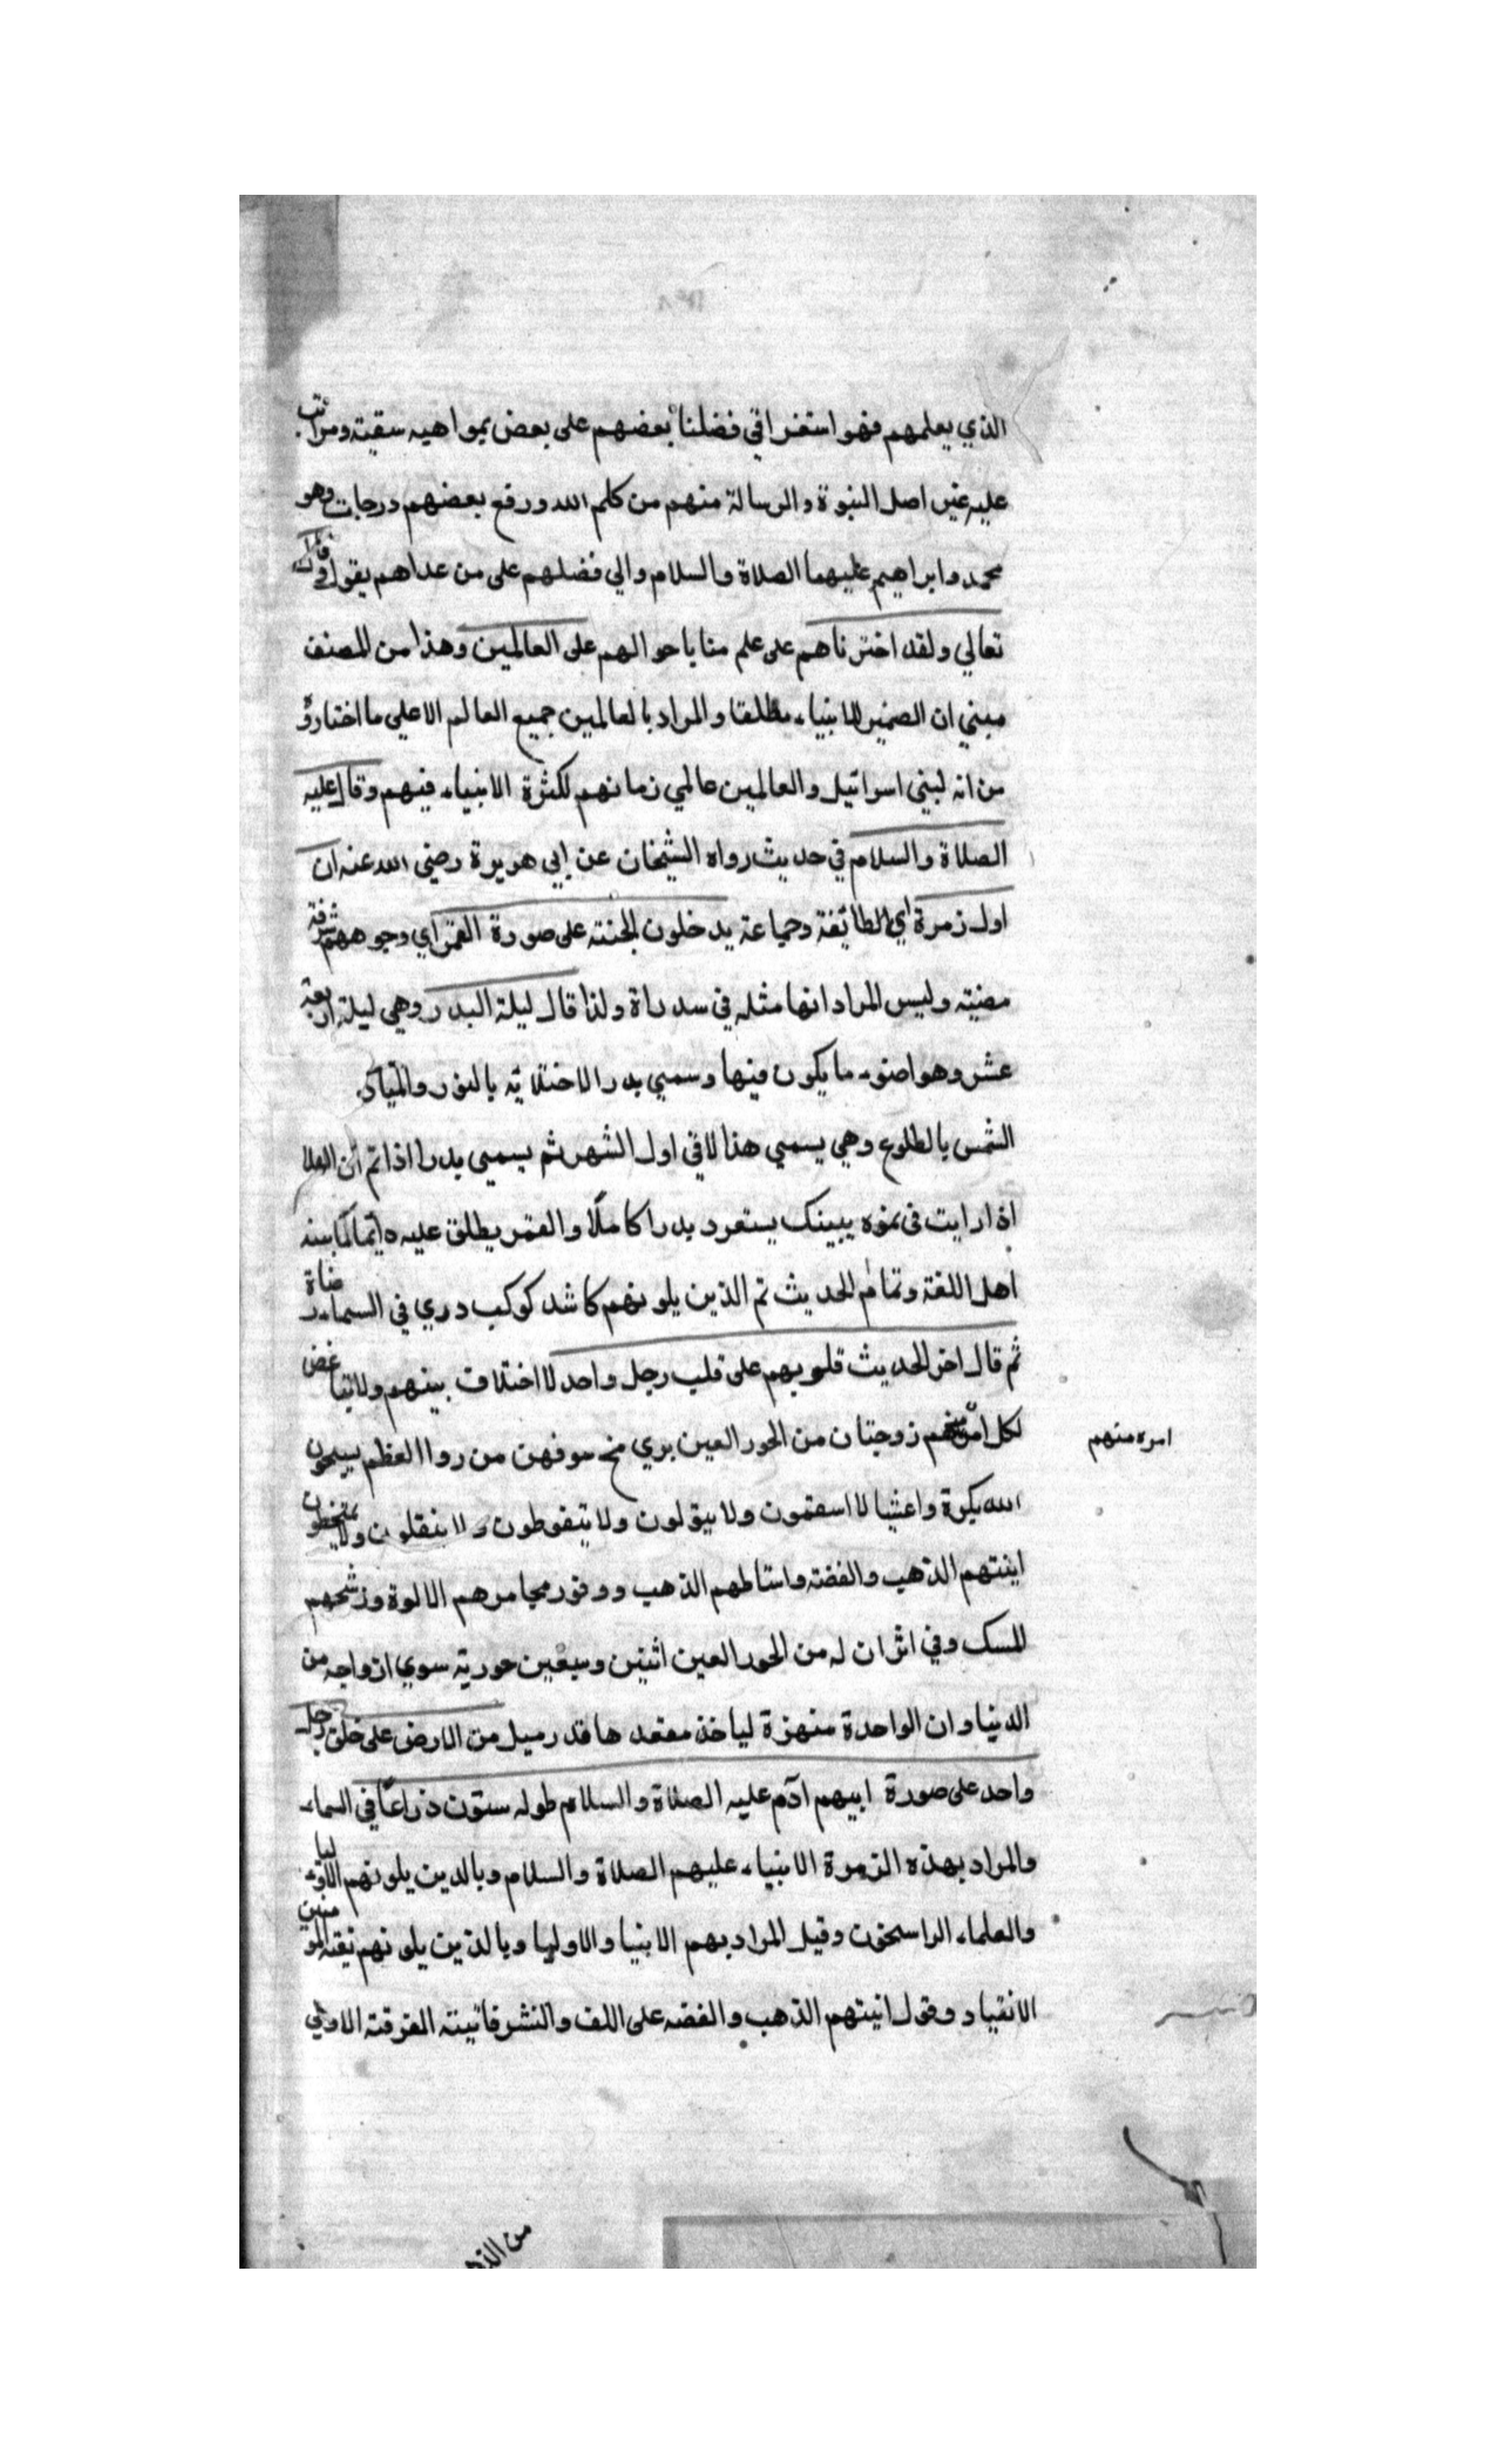 الذي يعلمهم فهو استغراقي فضلنا بعضهم على بعض بمواهبه سقيته ومراتب
عليه غير اصل النبوة والرسالة منهم من كلم الله ورفع بعضهم درجات وهو
محمد وابراهيم عليهما الصلاة والسلام والي فضلهم على من عداهم بقوله وقال
تعالي ولقد اخترناهم على علم منا باحوالهم على العالمين وهذا من المصنف
مبني ان الضمير للانبياء مطلقا والمراد بالعالمين جميع العالم الاعلي ما اختاروه
من انه لبني اسرائيل والعالمين عالمي زمانهم لكثرة الانبياء فيهم وقال عليه
الصلاة والسلام في حديث رواه الشيخان عن ابي هويرة رضي الله عنه ان
اول زمرة اي الطائفة وجماعة يدخلون الجنة على صورة القمر اي وجوههم مشرقة
مضية وليس المراد انها مثله في سدراة ولذا قال ليلة البدر وهي ليلة اربعة
عشر وهو اضوء ما يكون فيها وسمي بدرا لاختلائه بالنور والمبادي
الشمس بالطلوع وهي يسمي هذا لا في اول الشهر ثم يسمي بدرا اذا تم ان الهلا
اذا رايت في نموه يبينك يستعرد بدرا كاملا والقمر يطلق عليه دايما كما بينه
اهل اللغة وتمام الحديث ثم الذين يلونهم كاشد كوكب دري في السماء اضاة
ثم قال اخر الحديث قلوبهم على قلب رجل واحد لا اختلاف بينهم ولا تباغض
لكل امرء منهم زوجتان من الحور العين يري مخ سوقهن من روا العظم يسبحون
امره منهم
الله بكرة واعشيا لا اسقمون ولا يبولون ولا يتغوطون ولا ينفلون ولا يمتخطون
اينتهم الذهب والفضة وامشاطهم الذهب ووقود مجامرهم الالوة ورشحهم
المسك وفي اثر ان له من الحور العين اثنين وسبعين حورية سوي ازواجه من
الدنيا وان الواحدة منهن لياخذ مقعدها قدر ميل من الارض على خلق رجل
واحد على صورة ابيهم ادم عليه الصلاة والسلام طوله ستون ذراعا في السماء
والمراد بهذه الزمرة الانبياء عليهم الصلاة والسلام وبالذين يلونهم الاولياء
والعلماء الراسخون وقيل المراد بهم الانبيا والاوليا وبالذين يلونهم بقية المومنين
الانقياد وقول انيتهم الذهب والفضه على اللف والنشر فانيته الفرقة الاولي
من الذه